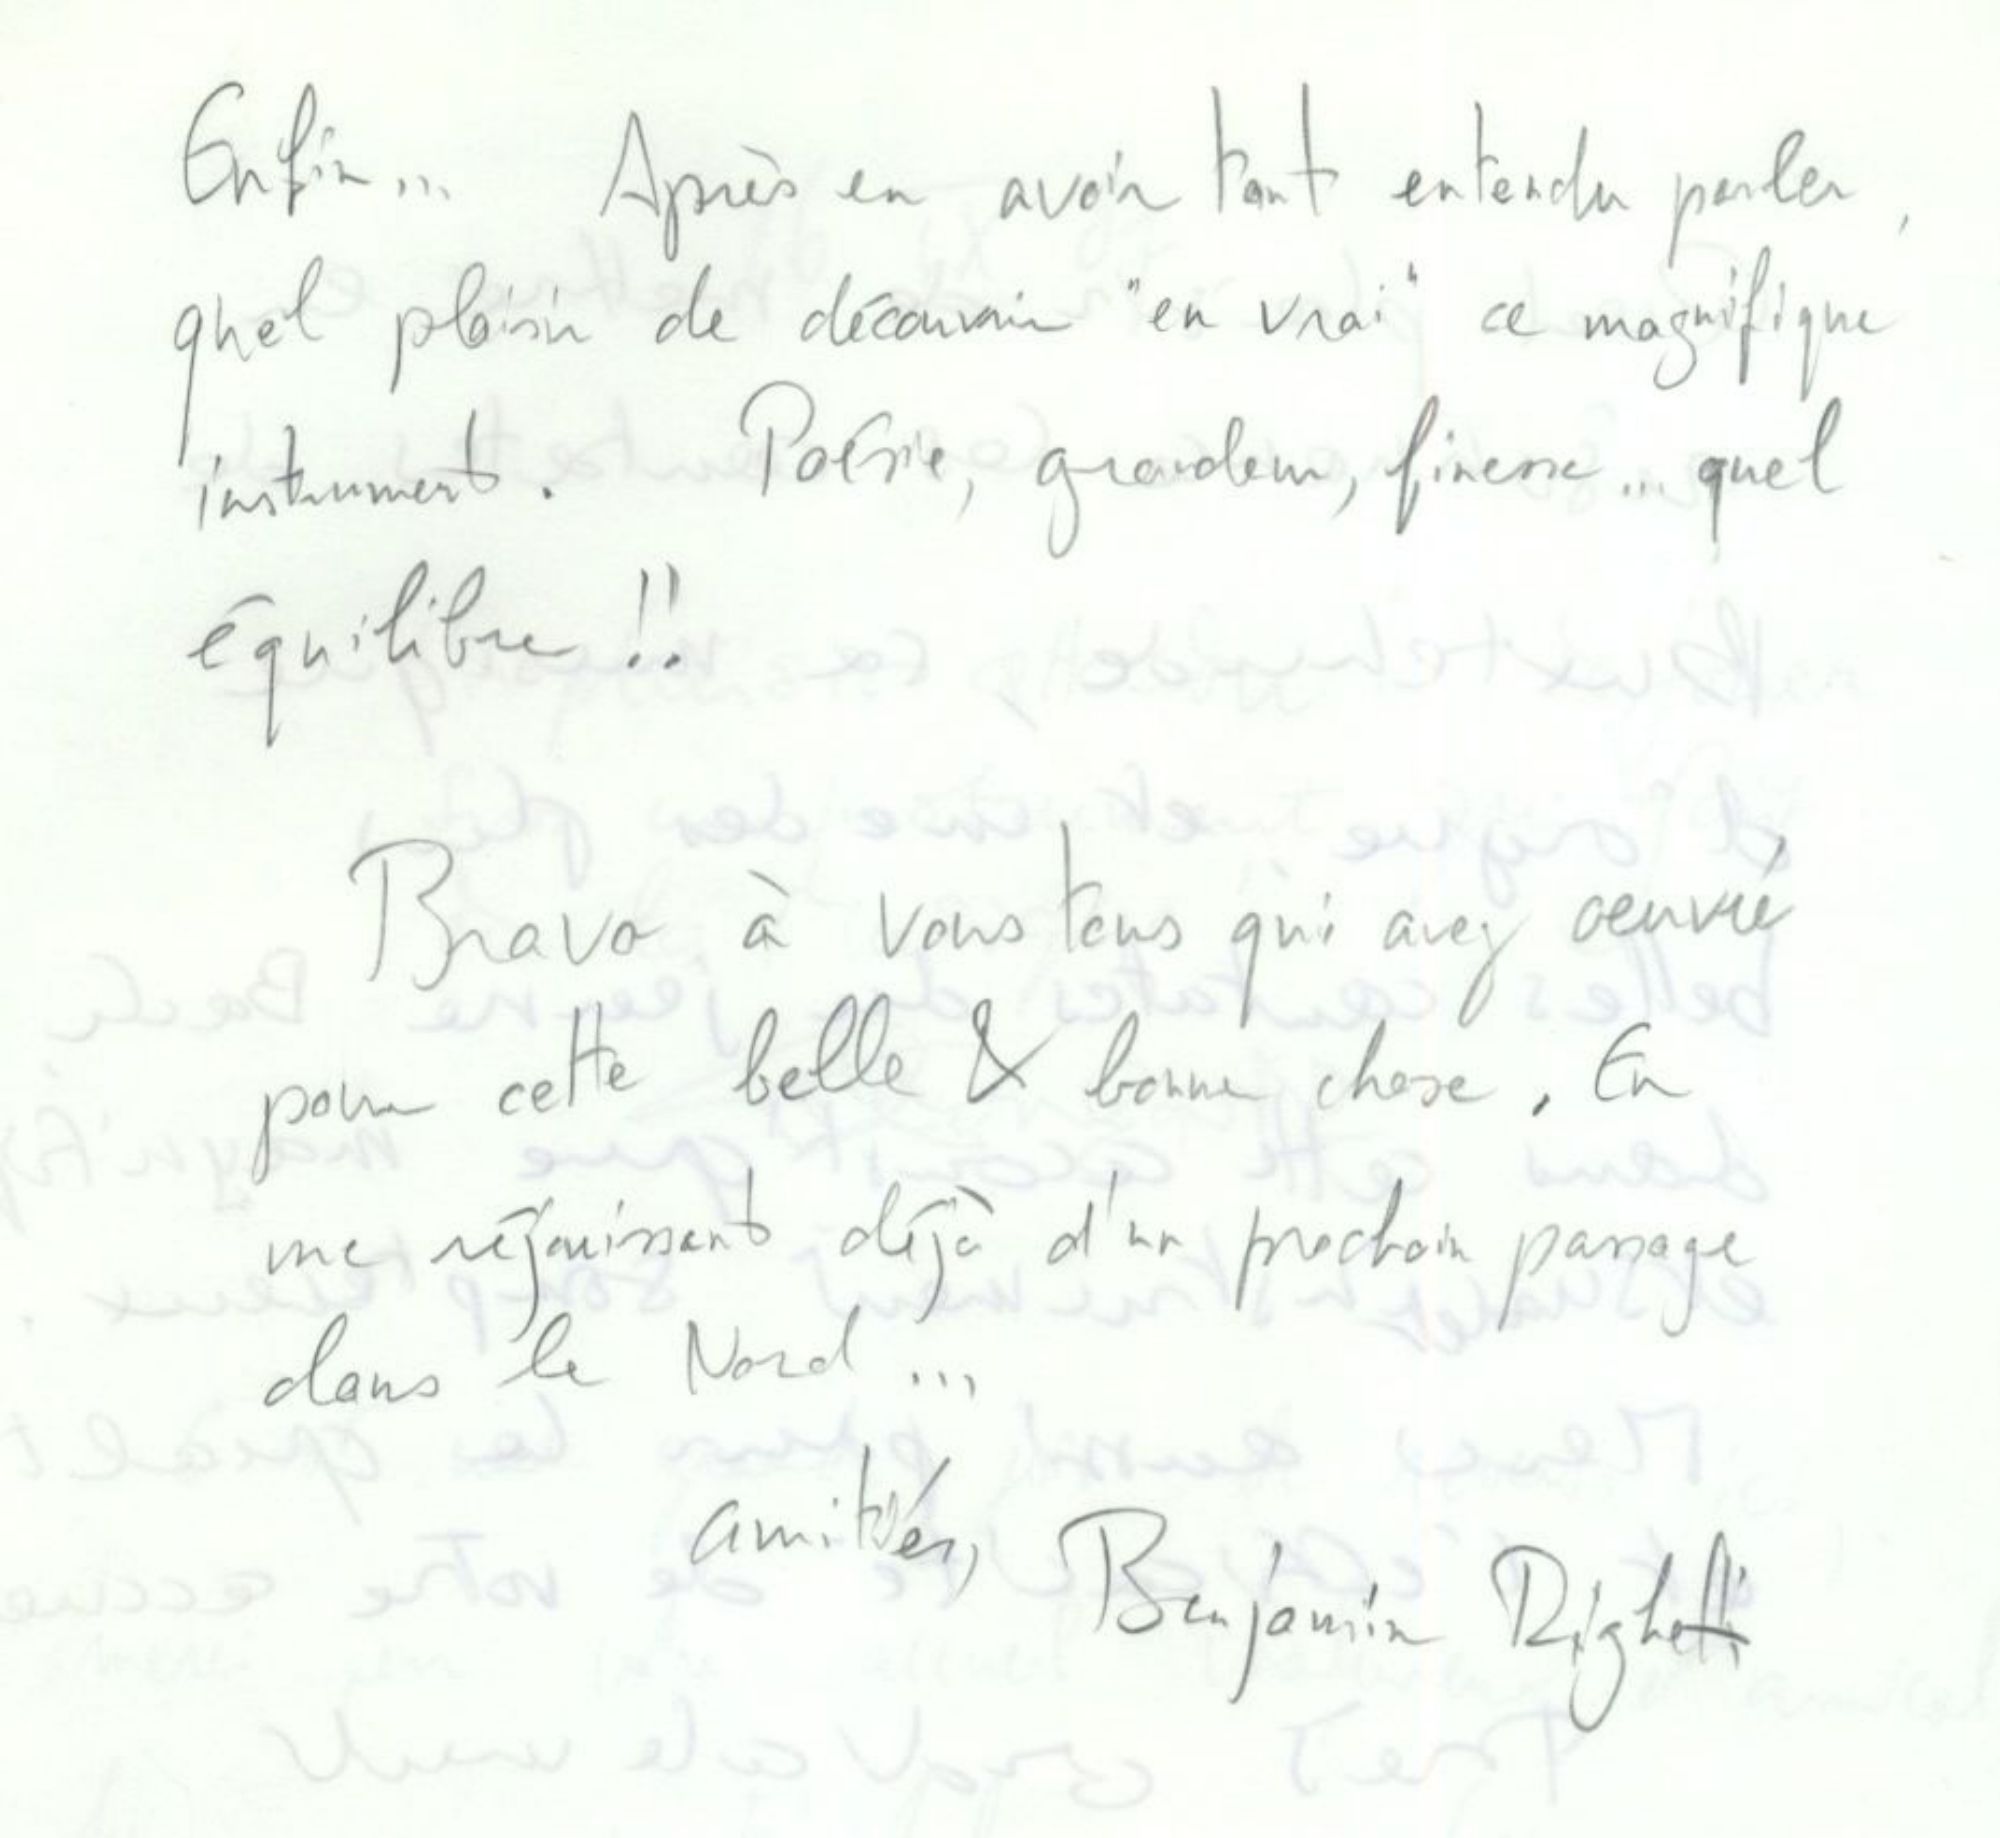 Enfin... Après en avoir tant entendu parler,
quel plaisir de découvrir "en vrai" ce magnifique
instrument. Poésie, grandeur, finesse... quel
équilibre !!
Bravo à vous tous qui avez oeuvré
pour cette belle & bonne chose. En
me réjouissant déjà d'un prochain passage
dans le Nord...
amitiés, Benjamin Righetti